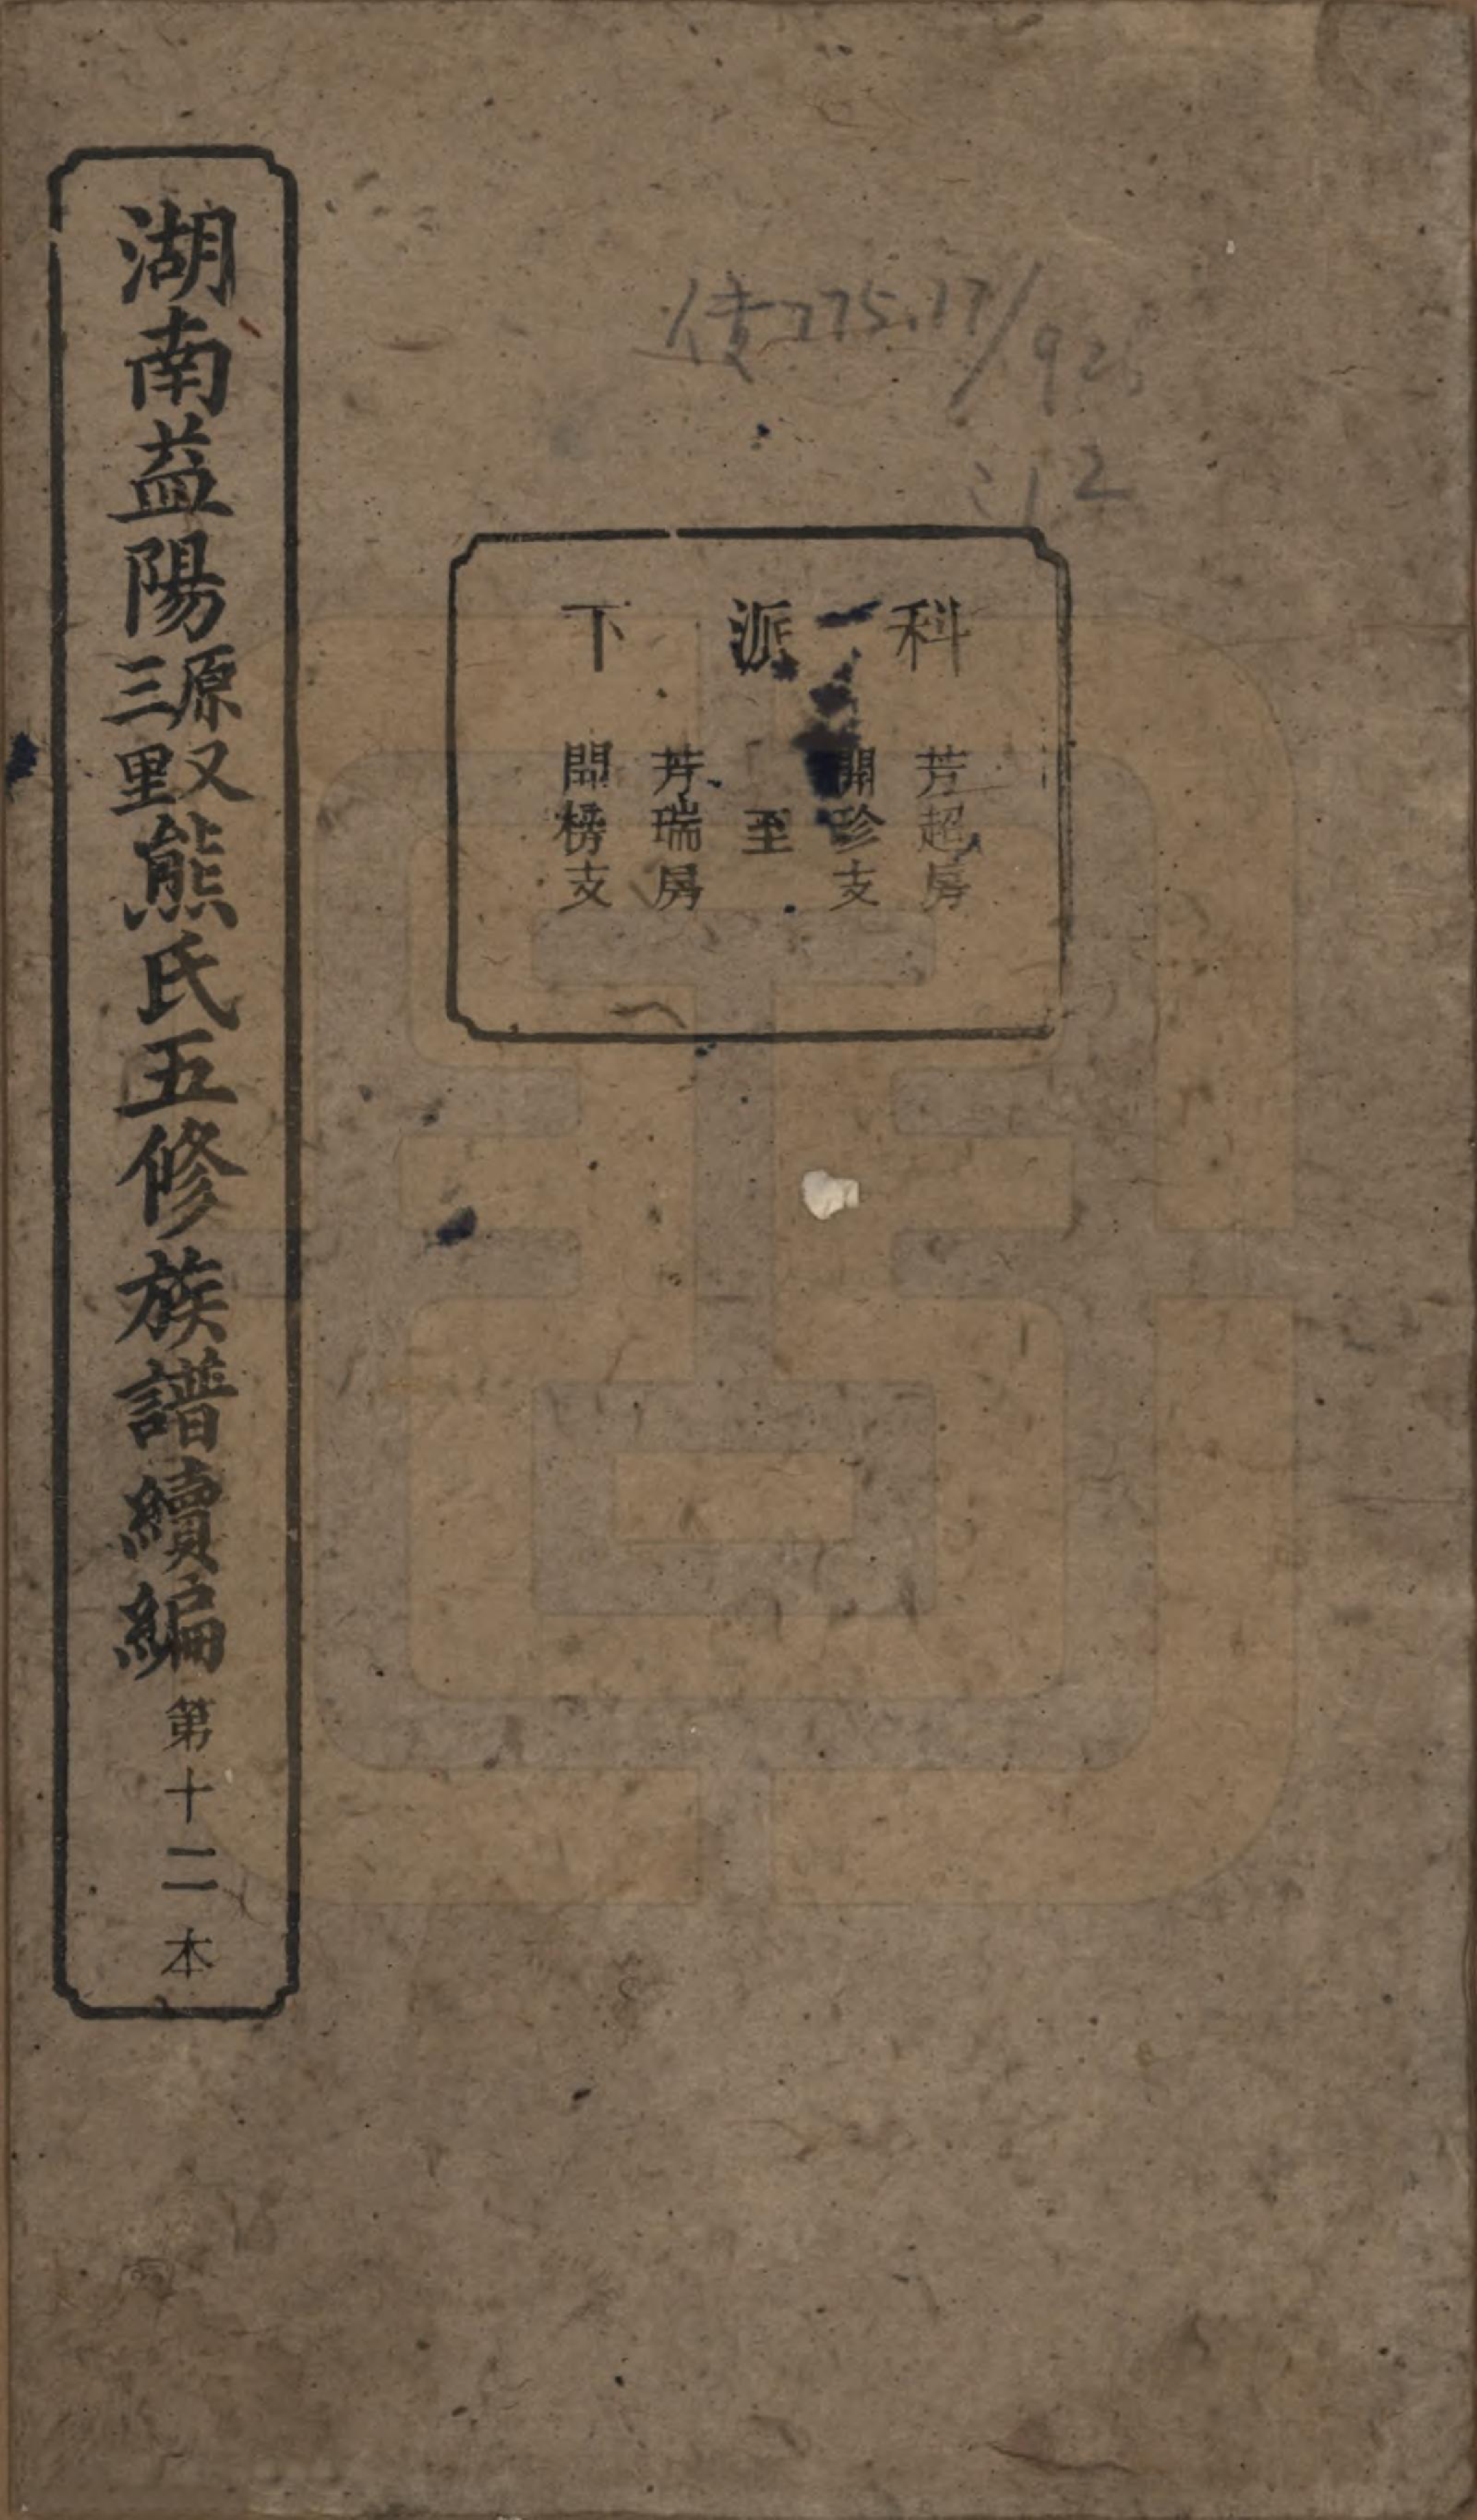 湖南益陽原又三里熊氏五修族譜續編第十二本
275.17/92
:12
科派下
芳超房
開珍支
至
芳瑞房
開榜支